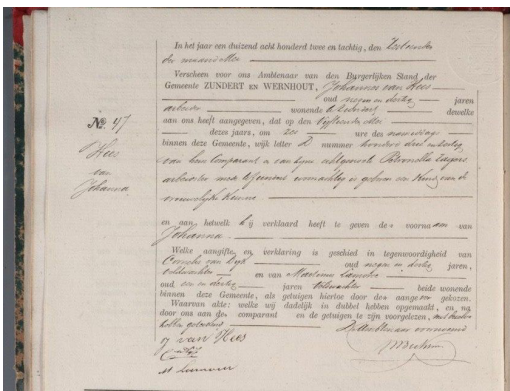 In het jaar een duizend acht honderd twee en tachtig, den zestienden
der maand Mei
Verscheen voor ons Ambtenaar van den Burgerlijken Stand der
Gemeente ZUNDERT EN WERNHOUT, Johannes van Hees
oud negen en dertig jaren
arbeider wonende te Zundert dewelke
aan ons heeft aangegeven, dat op den vijftienden Mei
dezes jaars, om zes ure des namiddags
binnen deze Gemeente, wijk letter D nummer honderd drie en
van hem Comparant en van zijne echtgenoote Pieternella
arbeidster mede alhier woonachtig is geboren een Kind van de
vrouwelijke Kunne
en aan hetwelk hij verklaard heeft te geven den voornaam van
Johanna
Welke aangifte en verklaring is geschied in tegenwoordigheid van
Cornelis van oud negen en dertig jaren,
veldwachter en van Marinus
oud een en dertig jaren veldwachter beide wonende
binnen deze Gemeente, als getuigen hiertoe door den aangever gekozen.
Waarvan akte: welke wij dadelijk in dubbel hebben opgemaakt, en na
door ons aan den comparant en de getuigen te zijn voorgelezen, met
hebben geteekend
van Hees
No. 47
Hees
van
Johanna